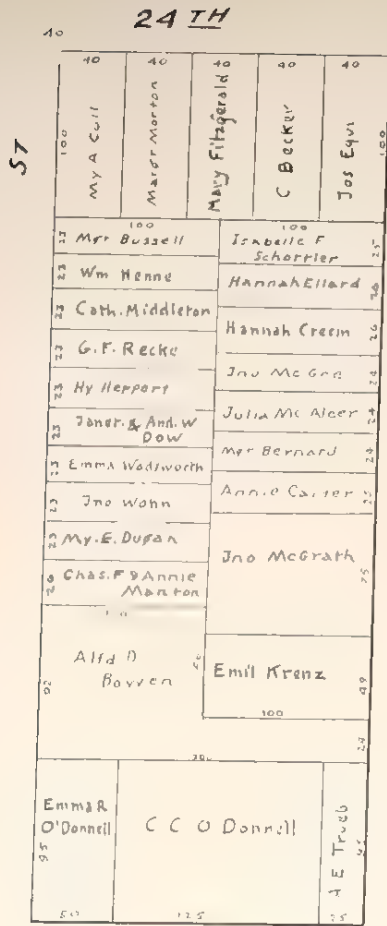 24 TH
40
ST
40 40 40 40 40
100 My A Cull
Margr Morton
Mary Fitzgerald
C Becker
Jos Equi 100
100
23 Mgr Bussell
23 Wm Henne
23 Cath. Middleton
23 G. F. Recke
23 Hy Herpart
23 Janet. & And. W
Dow
23 Emma Wadsworth
23 Jno Wohn
23 My. E. Dugan
Chas. F & Annie
Manton
100
Isabelle F
Schortler 25
Hannah Ellard 26
Hannah Creem 26
Jno Mc Gee 24
Julia Mc Aleer 24
Mgr Bernard 24
Annie Carter 25
Jno McGrath
75
Alfd D
Bowen
92
Emil Krenz 49
100
24
200
Emma R
O'Donnell
95
50
C C O Donnell
125
A E Trueb 95
25